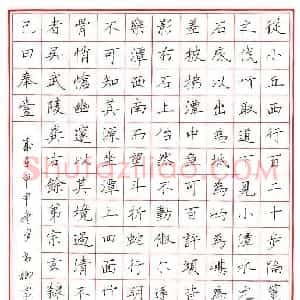 從小丘西行百二十步隔
之伐竹取道下見小潭水
石底以出為坻為嶼為嵁
差披拂潭中魚可百許頭
影布石上佁然不動俶爾
樂潭西南而望斗折蛇行
不可知其源坐潭上四面
骨悄愴幽邃以其境過清
者吳武陵龔古餘弟宗玄隸
己曰奉壹
Shufaziliao.com